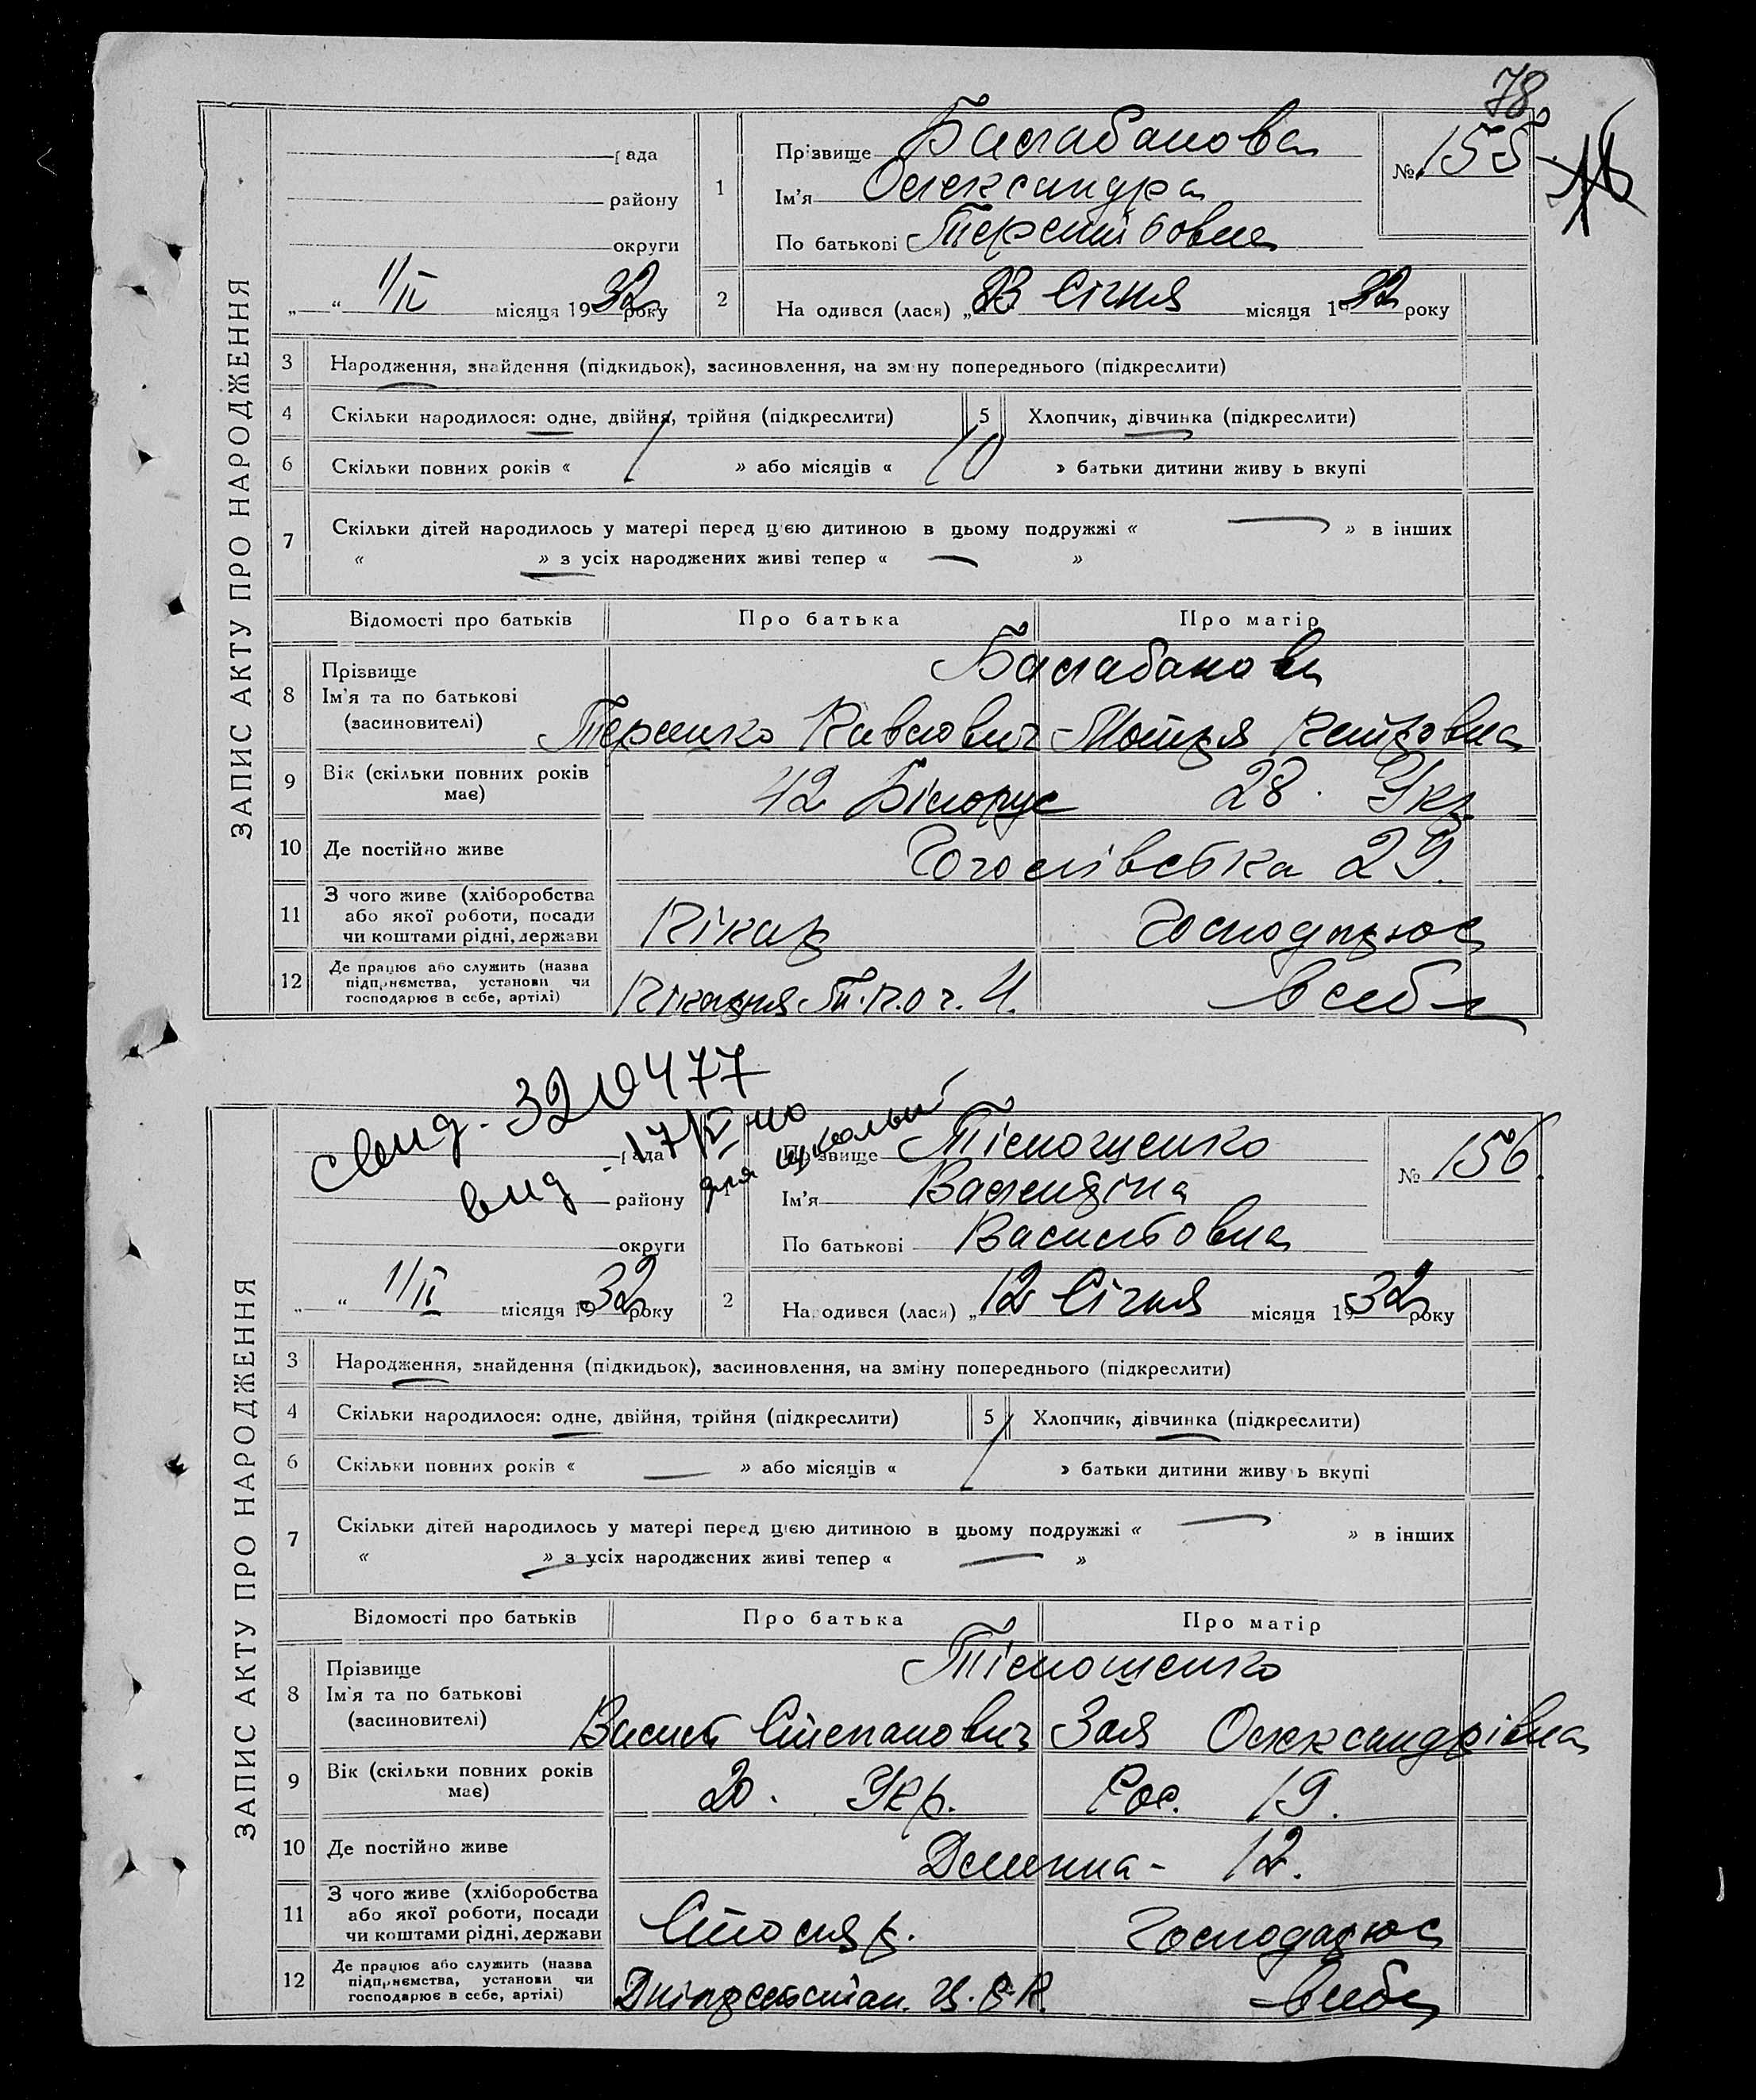 78
ЗАПИС АКТУ ПРО НАРОДЖЕННЯ
рада
району
округи
„ “ 1/II місяця 1932 року
1
Прізвище Балабанова
Ім'я Олександра
По батькові
№ 155
2
На одився (лася) „ Січня місяця 1932 року
3 Народження, знайдення (підкидьок), засиновлення, на зміну попереднього (підкреслити)
4 Скільки народилося: одне, двійня, трійня (підкреслити)
5 Хлопчик, дівчинка (підкреслити)
6 Скільки повних років « / » або місяців « 10 » батьки дитини живуть вкупі
7 Скільки дітей народилось у матері перед цією дитиною в цьому подружжі « — » в інших
« » з усіх народжених живі тепер « — »
Відомості про батьків Про батька Про матір
8 Прізвище Балабанови
Ім'я та по батькові
(засиновителі) Мотря
9 Вік (скільки повних років має) 42 Білорус 28. Укр.
10 Де постійно живе Гоголівська 29.
11 З чого живе (хліборобства або якої роботи, посади чи коштами рідні, держави Пікар Господарює
12 Де працює або служить (назва підприємства, установи чи господарює в себе, артілі) Пікарня в себе
свид. 3210477
вид. 17/ 40
для школы
ЗАПИС АКТУ ПРО НАРОДЖЕННЯ
рада
району
округи
„ “ 1/II місяця 1932 року
Прізвище Тімошенко
Ім'я Валентіна
По батькові Васильовна
№ 156
2
На одився (лася) „ 12 Січня місяця 1932 року
3 Народження, знайдення (підкидьок), засиновлення, на зміну попереднього (підкреслити)
4 Скільки народилося: одне, двійня, трійня (підкреслити)
5 Хлопчик, дівчинка (підкреслити)
6 Скільки повних років « — » або місяців « / » батьки дитини живуть вкупі
7 Скільки дітей народилось у матері перед цією дитиною в цьому подружжі « — » в інших
« » з усіх народжених живі тепер « — »
Відомості про батьків Про батька Про матір
8 Прізвище Тімошенко
Ім'я та по батькові
(засиновителі) Василь Степанович Зоя Олександрівна
9 Вік (скільки повних років має) 20. Укр. Рос. 19.
10 Де постійно живе 12.
11 З чого живе (хліборобства або якої роботи, посади чи коштами рідні, держави Столяр. Господарює
12 Де працює або служить (назва підприємства, установи чи господарює в себе, артілі) в себе